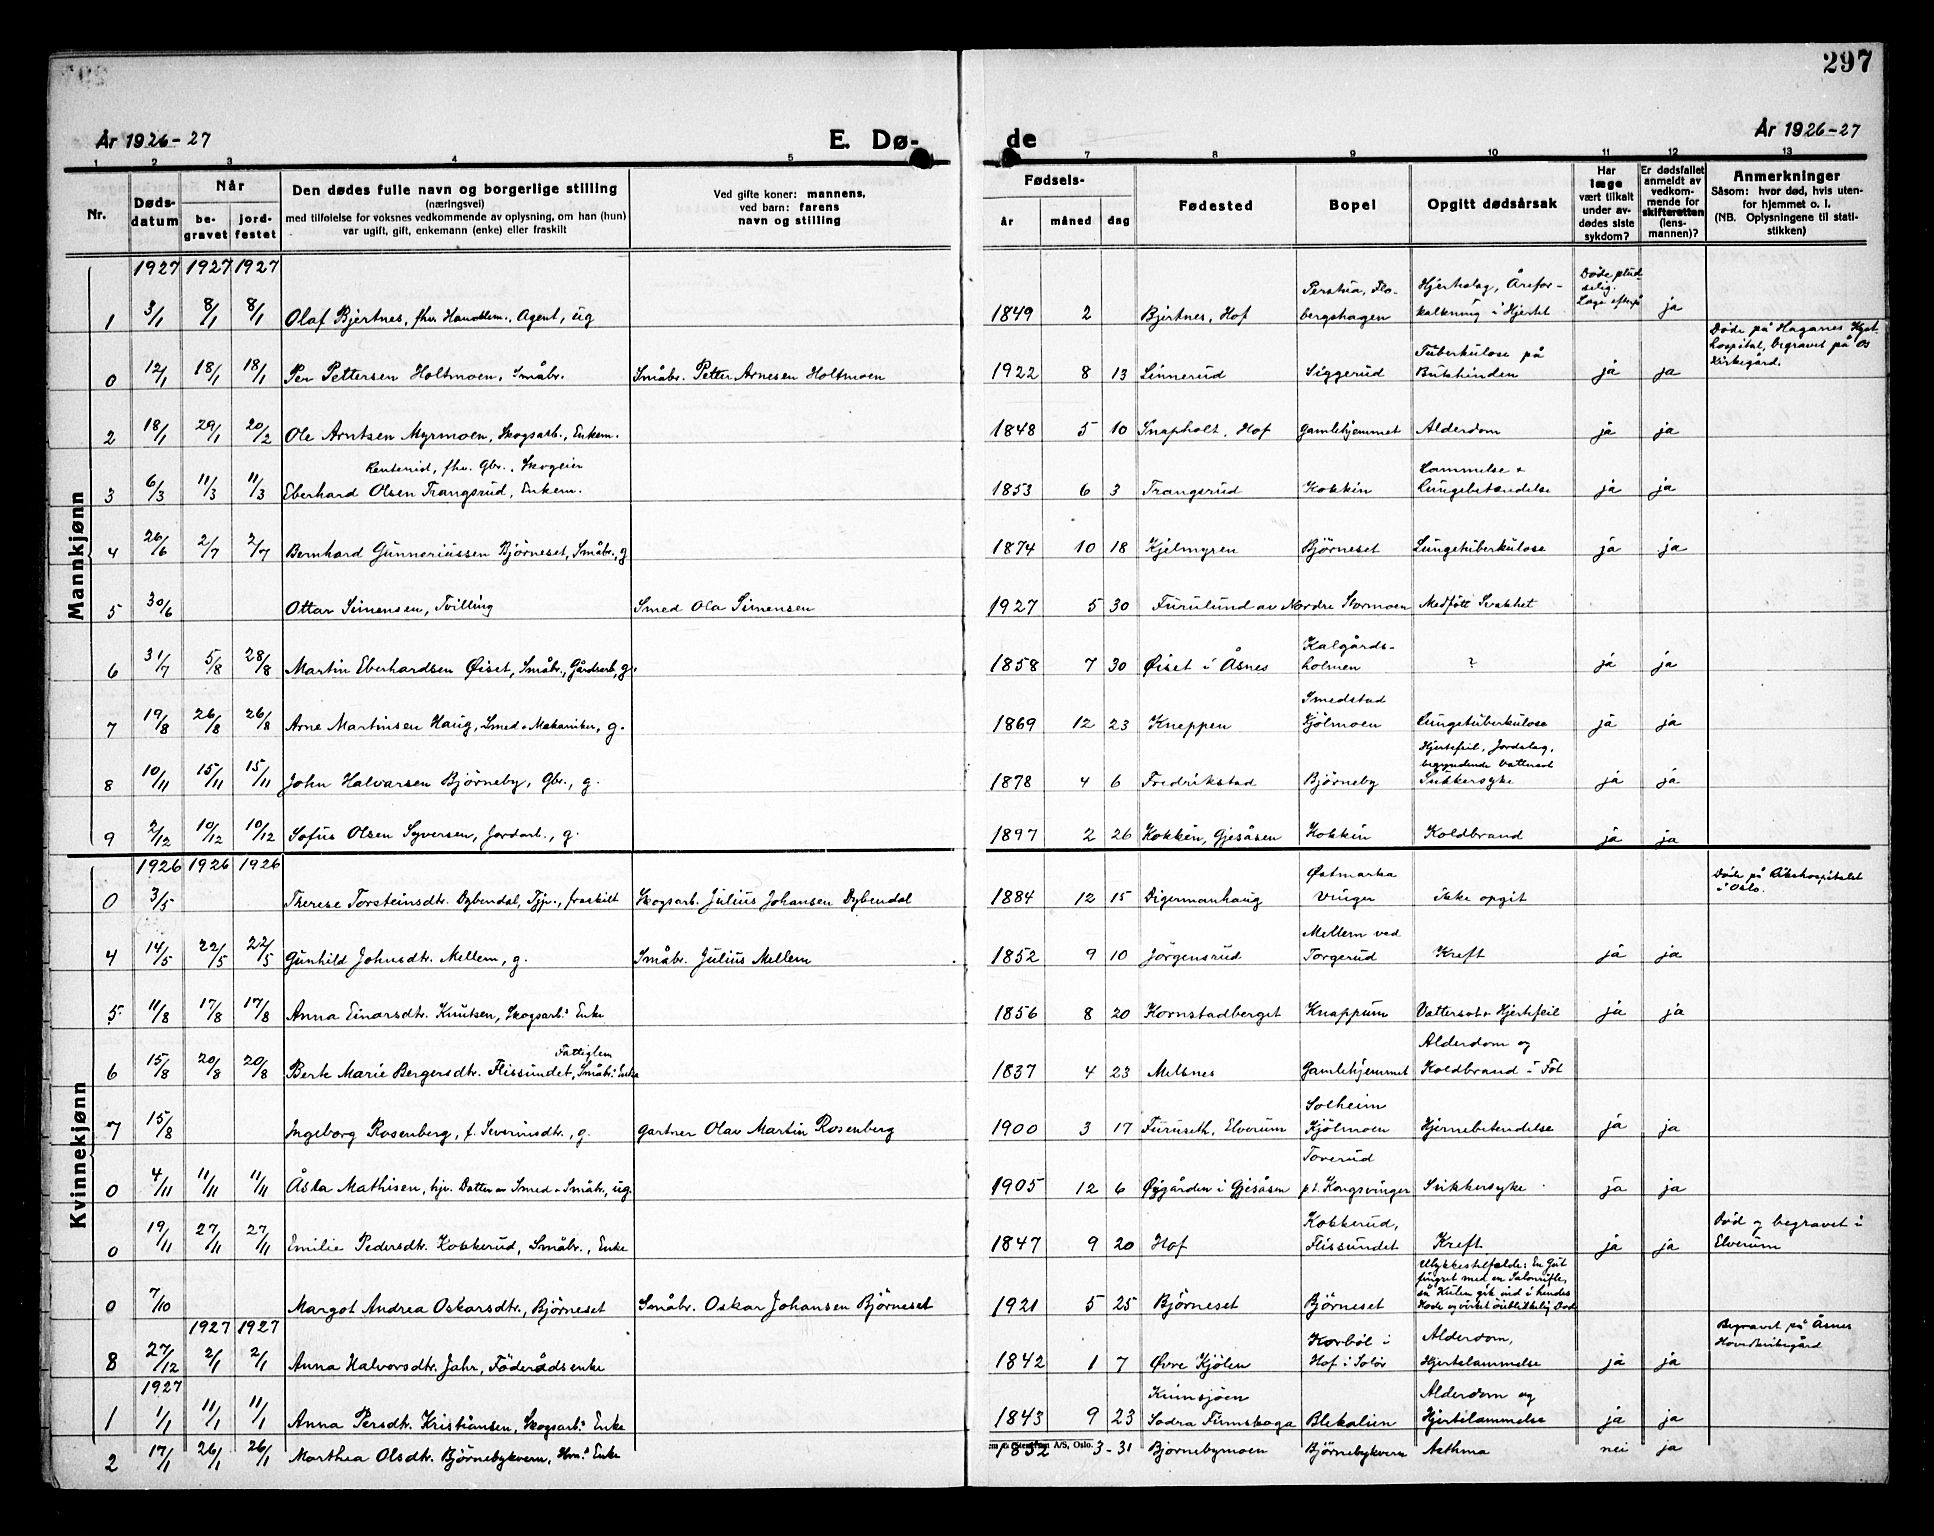 297
År 1926-27
E. Dø-
de
År 1926-27
1 2 3 4 5 7 8 9 10 11 12 13
Nr.
Døds-
datum
Når
be-
gravet
jord-
festet
Den dødes fulle navn og borgerlige stilling
(næringsvei)
med tilføielse for voksnes vedkommende av oplysning, om han (hun)
var ugift, gift, enkemann (enke) eller fraskilt
Ved gifte koner: mannens,
ved barn: farens
navn og stilling
Fødsels-
år måned dag
Fødested
Bopel
Opgitt dødsårsak
Har
læge
vært tilkalt
under av-
dødes siste
sykdom?
Er dødsfallet
anmeldt av
vedkom-
mende for
skifteretten
(lens-
mannen)?
Anmerkninger
Såsom: hvor død, hvis uten-
for hjemmet o. l.
(NB. Oplysningene til stati-
stikken)
Mannkjønn
1927 1927 1927
Perstua, Flo- Hjerteslag, Årefor- Døde plud-
selig.
1 3/1 8/1 8/1 Olaf Bjertnes, fhv. Handelsm., Agent, ug 1849 2 Bjertnes, Hof bergshagen kalkning i Hjertet Læge efterpå ja
Døde på Haganes Kyst-
hospital, begravet på Os
Kirkegård.
Tuberkulose på
0 12/1 18/1 18/1 Per Pettersen Holtmoen, Småbr. Småbr. Petter Arnesen Holtmoen 1922 8 13 Linnerud Siggerud Bukhinden ja ja
2 18/1 29/1 20/2 Ole Arntsen Myrmoen, Skogsarb., Enkem. 1848 5 10 Snapholt, Hof Gamlehjemmet Alderdom ja ja
Rentenist, fhv. Gbr., Skogeier Lammelse &
3 6/3 11/3 11/3 Eberhard Olsen Trangsrud, Enkem. 1853 6 3 Trangsrud Kokkin Lungebetendelse ja ja
4 26/6 2/7 2/7 Bernhard Gunneriussen Björneset, Småbr., g 1874 10 18 Kjelmyren Björneset Lungetuberkulose ja ja
5 30/6 Ottar Simensen, Tvilling Smed Ola Simensen 1927 5 30 Furulund av Nordre Stormoen Medfött Svakhet
Kalgårds-
6 31/7 5/8 28/8 Martin Eberhardsen Øiset, Småbr., Gårdsarb, g. 1858 7 30 Øiset i Åsnes holmen ? ja ja
Smedstad
7 19/8 26/8 26/8 Arne Martinsen Haug, Smed & Mekaniker, g. 1869 12 23 Kneppen Kjölmoen Lungetuberkulose ja ja
Hjertefeil, Jordslag,
begyndende Vattersot
8 10/11 15/11 15/11 John Halvarsen Björneby, Gbr., g. 1878 4 6 Fredrikstad Björneby Sukkersyke ja ja
9 2/12 10/12 10/12 Sofus Olsen Syversen, Jordarb., g. 1897 2 26 Kokkin, Gjesåsen Kokkin Koldbrand ja ja
Kvinnekjønn
1926 1926 1926
Østmarka Døde på Rikshospitalet
i Oslo.
0 3/5 Therese Torsteinsdtr. Dybendal, Tjp., fraskilt Skogsarb. Julius Johansen Dybendal 1884 12 15 Digermanhaug Vinger ikke opgit
Mellem ved
4 14/5 22/5 22/5 Gunhild Johnsdtr. Mellem, g. Småbr. Julius Mellem 1852 9 10 Jörgensrud Torgerud Kreft ja ja
5 11/8 17/8 17/8 Anna Einarsdtr. Knutsen, Skogsarb.s Enke 1856 8 20 Kornstadberget Knappum Vattersot & Hjertefeil ja ja
Fattiglem Alderdom og
6 15/8 20/8 20/8 Berte Marie Bergersdtr. Flissundet, Småbr.s Enke 1837 4 23 Melsnes Gamlehjemmet Koldbrand i Fot
Solheim
7 15/8 Ingeborg Rosenberg, f. Severinsdtr., g. Gartner Olav Martin Rosenberg 1900 3 17 Furuseth, Elverum Kjölmoen Hjernebetendelse ja ja
Toverud
0 4/11 11/11 11/11 Åsta Mathisen, hjv. Datter av Smed & Småbr., ug. 1905 12 6 Øygården i Gjesåsen p.t. Kongsvinger Sukkersyke ja ja
Kokkerud, Död og begravet i
0 19/11 27/11 27/11 Emilie Pedersdtr. Kokkerud, Småbr., Enke 1847 9 20 Hof Flissundet Kreft ja ja Elverum
Ulykkestilfælde: En Gut
fingret med en Salonrifle,
så Kulen gik ind i hendes
0 7/10 Margot Andrea Oskarsdtr., Björneset Småbr. Oskar Johansen Björneset 1921 5 25 Björneset Björneset Hode og virket öieblikkelig Död
1927 1927
Korböl i Alderdom, Begravet på Åsnes
8 27/12 2/1 2/1 Anna Halvorsdtr. Jahr, Föderådsenke 1842 1 7 Øvre Kjölen Hof i Solör Hjertelammelse ja ja Hovedkirkegård
1927
Kunsjöen Alderdom og
1 1/1 11/1 11/1 Anna Persdtr. Kristiansen, Skogsarb.s Enke 1843 9 23 Södra Finnskoga Blekalien Hjertelammelse ja ja
2 17/1 26/1 26/1 Marthea Olsdtr. Björnebykvern, Hm.s Enke 1852 3-31 Björnebymoen Björnebykvern Asthma nei ja
A/S, Oslo.